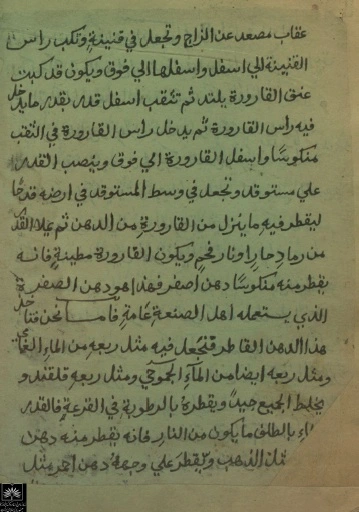 عقاب مصعد عن الزاج وتجعل في قنينة وتكب راس
القنينة الي اسفل واسفلها الي فوق ويكون قد
عنق القارورة ثم تثقب اسفل قدر بقدر ما يدخل
فيه راس القارورة ثم يدخل راس القارورة في الثقب
منكوسا واسفل القارورة الي فوق وينصب القدر
علي مستوقد وتجعل في وسط المستوقد في ارضه قدحا
ليقطر فيه ما ينزل من القارورة من الدهن ثم يملا القدر
من رماد حار او نار فحم ويكون القارورة مطينة فانه
يقطر منه منكوسا دهن اصفر فهذا هو دهن الصفرة
الذي يستعمله اهل الصنعة عامة فاما نحن فناخذ
هذا الدهن القاطر فنجعل فيه مثل ربعه من الماء
ومثل ربعه ايضا من الماء ومثل ربعه قلقند و
يخلط الجميع جيدا ويقطره بالرطوبة في القرعة فالقدر
ماء بالطلق ما يكون من النار فانه يقطر منه دهن
مثل الذهب ويقطر علي وجهه دهن احمر مثل